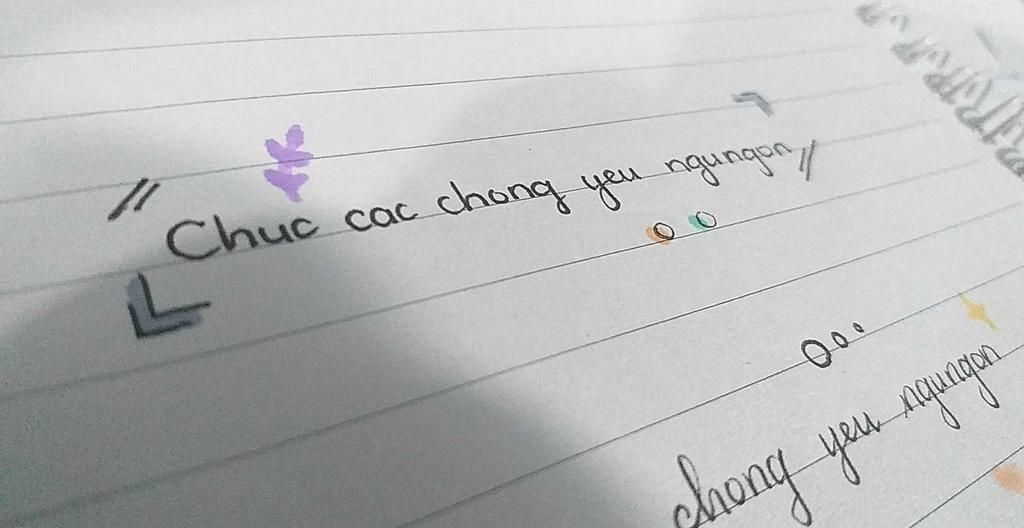 Chuc cac chong yeu ngungon
chong yeu ngungon